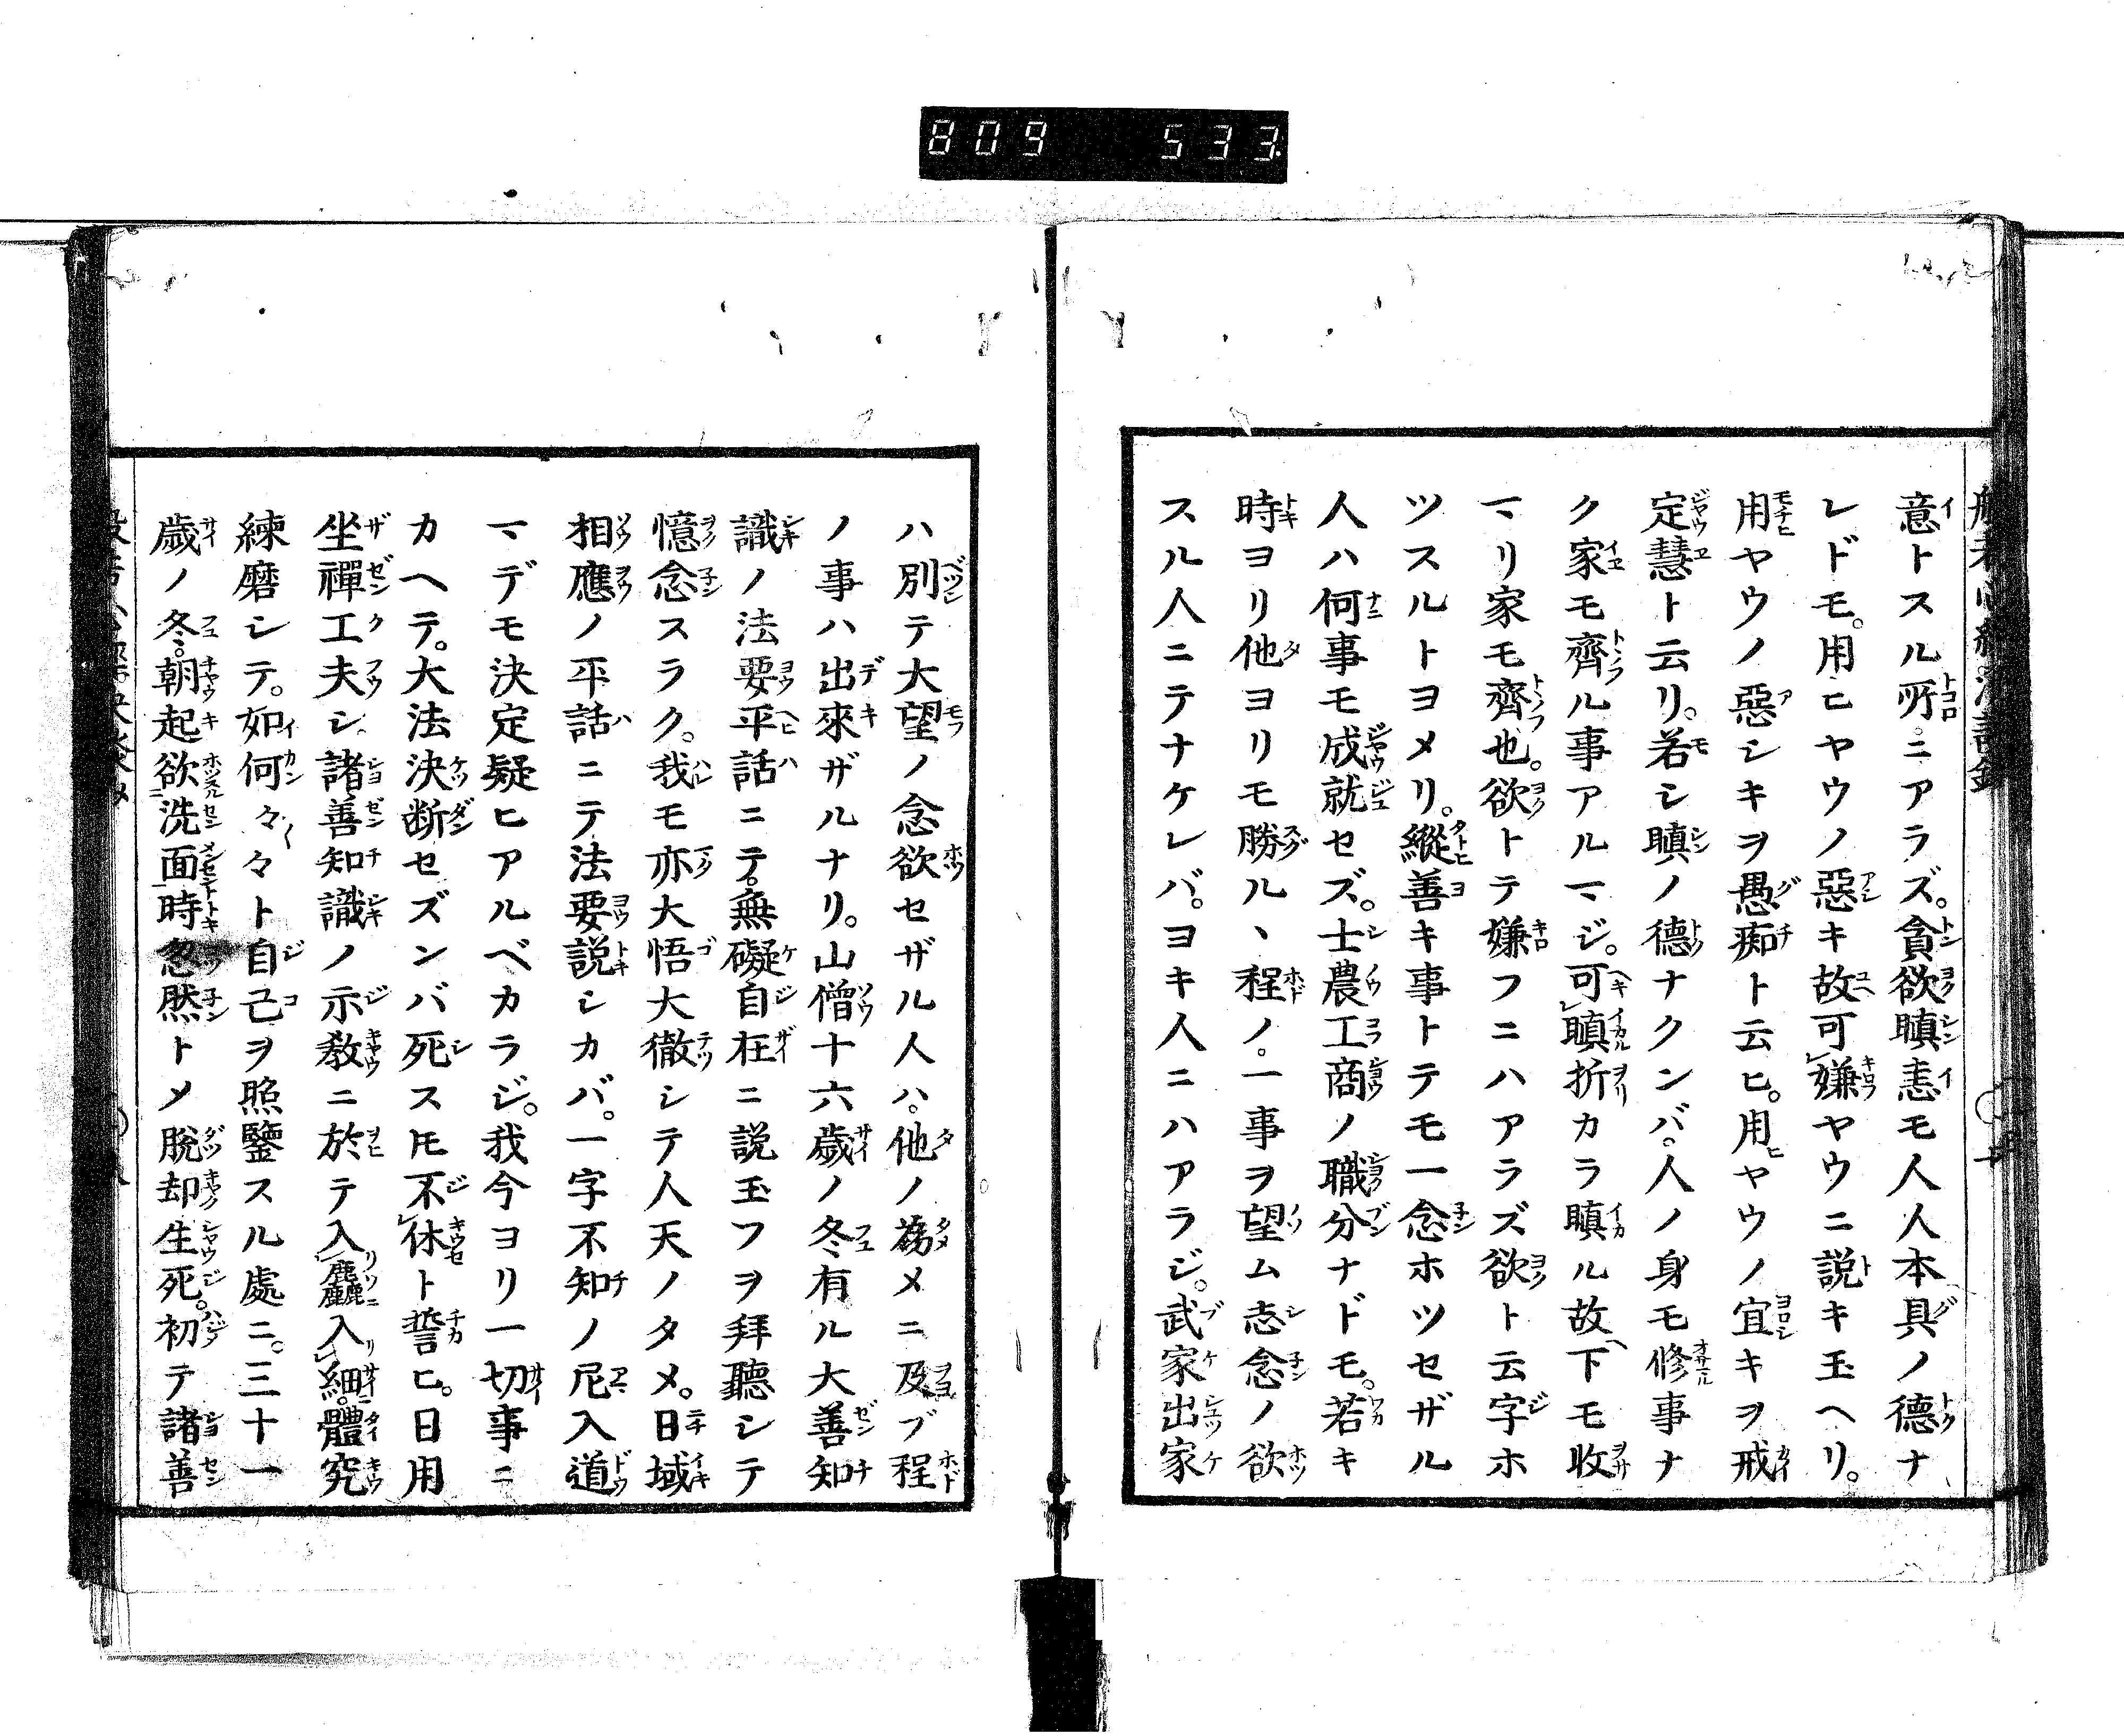 809 533
意トスル所ニアラズ。貪欲瞋恚モ人人本具ノ德ナ
レドモ。用ヒヤウノ惡キ故可嫌ヤウニ説キ玉ヘリ。
用ヤウノ惡シキヲ愚痴ト云ヒ。用ヒヤウノ宜キヲ戒
定慧ト云リ。若シ瞋ノ德ナクンバ。人ノ身モ修事ナ
ク家モ齊ル事アルマジ。可瞋折カラ瞋ル故ヘ下モ收
マリ家モ齊也。欲トテ嫌フニハアラズ欲ト云字ホ
ツスルトヨメリ。縱善キ事トテモ一念ホツセザル
人ハ何事モ成就セズ。士農工商ノ職分ナドモ。若キ
時ヨリ他ヨリモ勝ル、程ノ。一事ヲ望ム志念ノ欲
スル人ニテナケレバ。ヨキ人ニハアラジ。武家出家
ハ別テ大望ノ念欲セザル人ハ。他ノ爲メニ及ブ程
ノ事ハ出來ザルナリ。山僧十六歳ノ冬有ル大善知
識ノ法要平話ニテ。無礙自在ニ説玉フヲ拜聽シテ
憶念スラク。我モ亦大悟大徹シテ人天ノタメ。日域
相應ノ平話ニテ法要説シカバ。一字不知ノ尼入道
マデモ決定疑ヒアルベカラジ。我今ヨリ一切事ニ
カヘテ。大法決断セズンバ死ストモ不休ト誓ヒ。日用
坐禪工夫シ。諸善知識ノ示敎ニ於テ入麤入細。體究
練磨シテ。如何々々ト自己ヲ照鑒スル處ニ。三十一
歳ノ冬。朝起欲洗面時忽然トメ脫却生死。初テ諸善